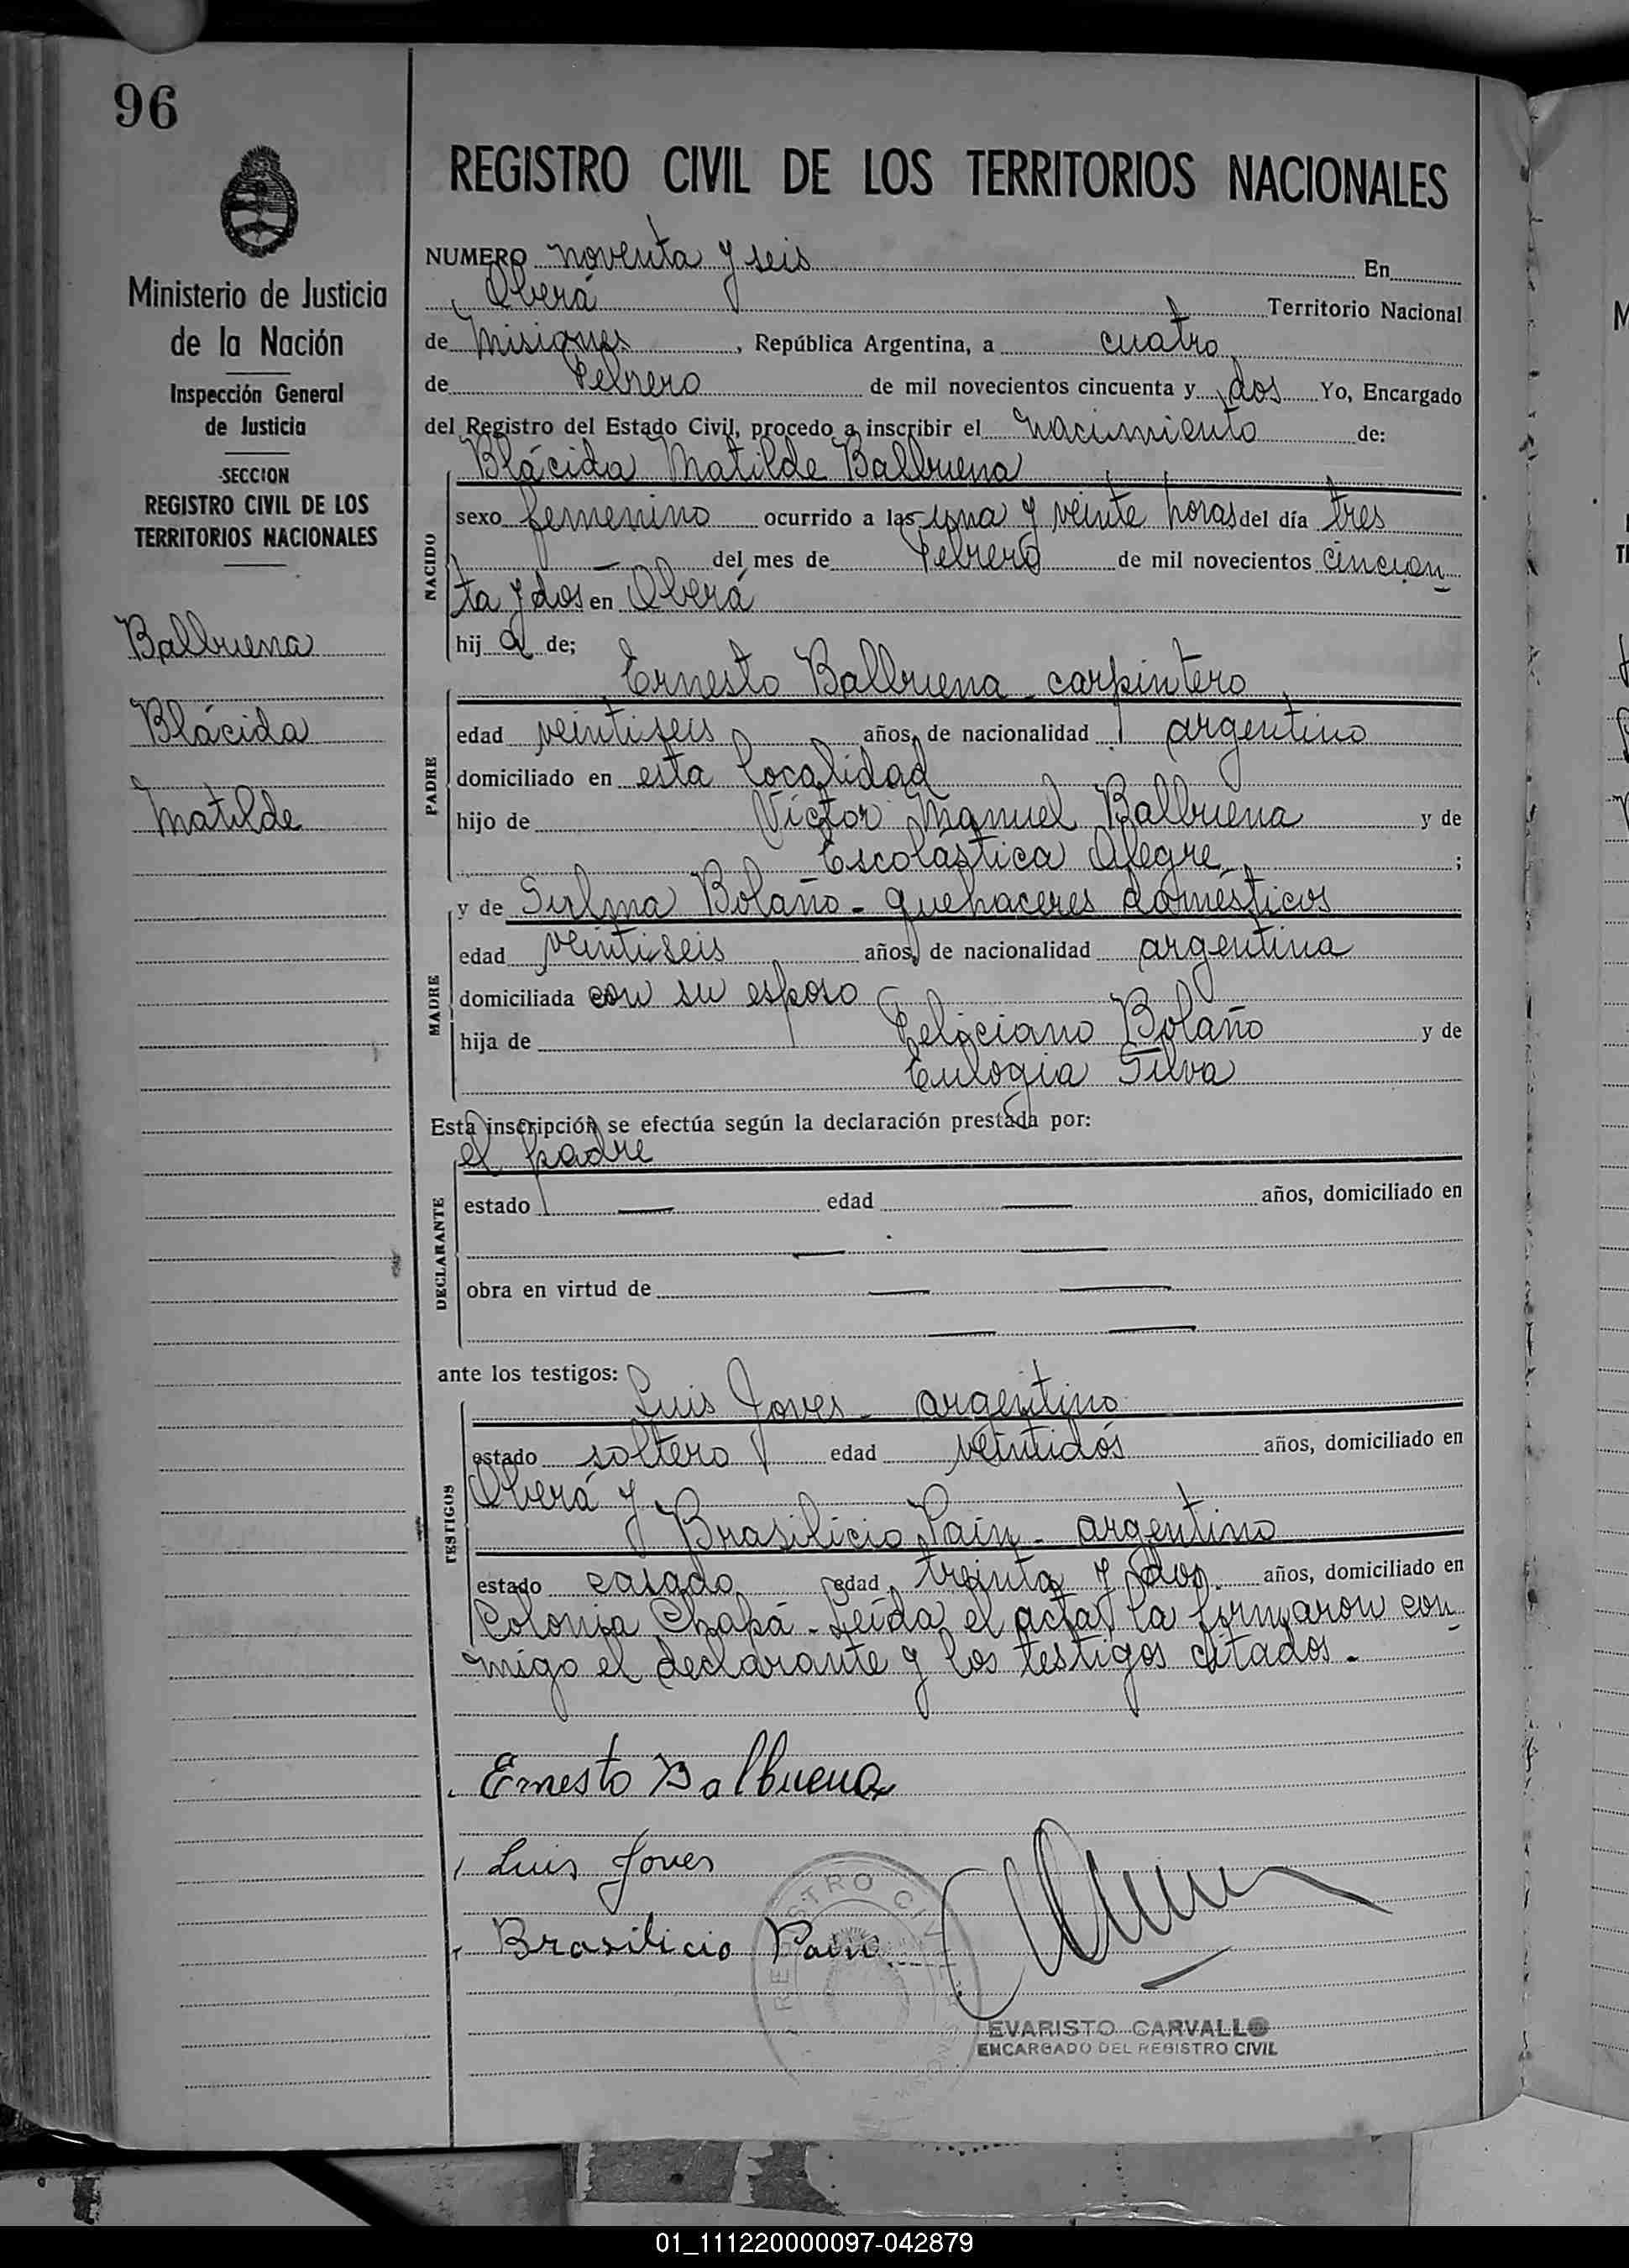 96
REGISTRO CIVIL DE LOS TERRITORIOS NACIONALES
Ministerio de Justicia
de la Nación
Inspección General
de Justicia
SECCION
REGISTRO CIVIL DE LOS
TERRITORIOS NACIONALES
Balbuena
Blácida
Matilde
NUMERO noventa y seis En
Oberá Territorio Nacional
de Misiones, República Argentina, a cuatro
de Febrero de mil novecientos cincuenta y dos Yo, Encargado
del Registro del Estado Civil, procedo a inscribir el nacimiento de:
Blácida Matilde Balbuena
NACIDO
sexo femenino ocurrido a las una y veinte horas del día tres
— del mes de Febrero de mil novecientos cincuen
ta y dos en Oberá
hij a de;
Ernesto Balbuena - carpintero
PADRE
edad veintiseis años, de nacionalidad argentino
domiciliado en esta localidad
hijo de Víctor Manuel Balbuena y de
Escolástica Alegre ;
y de Sulma Bolaño - quehaceres domésticos
MADRE
edad veintiseis años, de nacionalidad argentina
domiciliada con su esposo
hija de Feliciano Bolaño y de
Eulogia Silva
Esta inscripción se efectúa según la declaración prestada por:
el padre
DECLARANTE
estado — edad — años, domiciliado en
— —
obra en virtud de — —
— —
ante los testigos:
Luis Joves - argentino
TESTIGOS
estado soltero edad veintidós años, domiciliado en
Oberá y
Brasilicio Pain - argentino
estado casado edad treinta y dos años, domiciliado en
Colonia Chapá - Leída el acta, la firmaron con
migo el declarante y los testigos citados -
Ernesto Balbuena
Luis Joves
Brasilicio Pain
REGISTRO CIVIL
EVARISTO CARVALLO
ENCARGADO DEL REGISTRO CIVIL
01_111220000097-042879